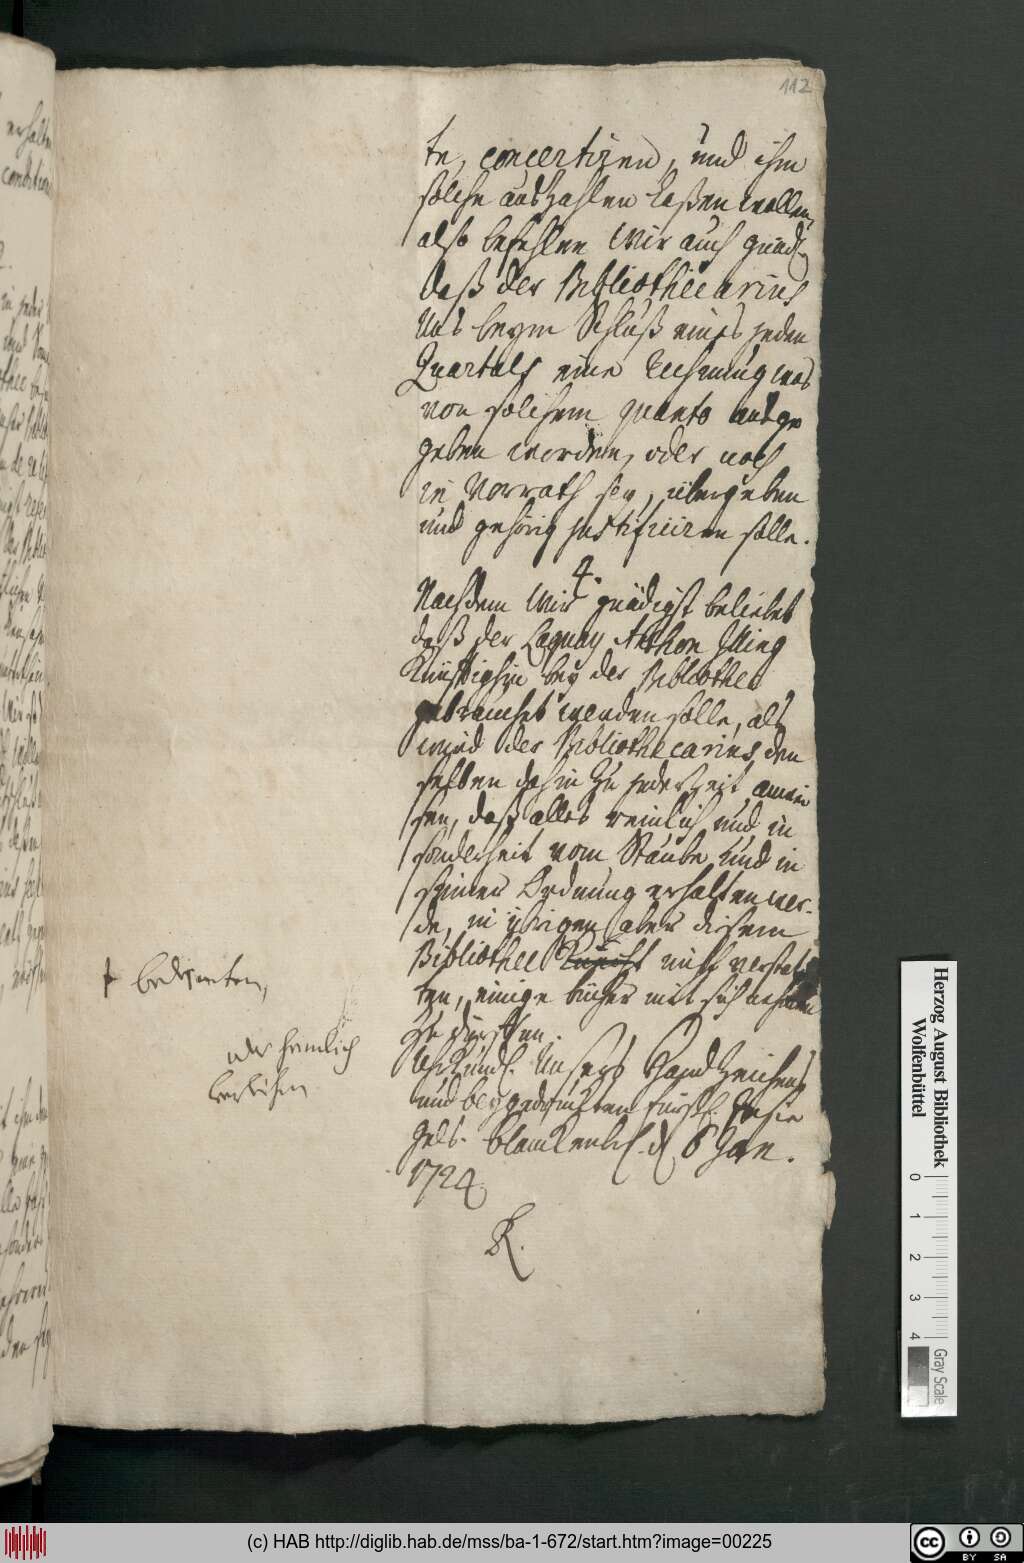 112
te, concertiren, und ihm
solche auszahlen laßen wollen,
also befehlen Wir auch gnäd.
daß der Bibliothecarius
Uns beym Schluß eines jeden
Quartals eine Rechnung was
von solchem quanto ausge
geben worden, oder noch
in Vorrath sey, übergeben
und gehörig justificiren solle.
4.
Nachdem Wir gnädigst beliebet
daß der Laquay Anthon
Künfftighin bey der Bibliothec
gebrauchet werden solle, als
wird der Bibliothecarius den
selben dahin zu jederzeit anwei
sen, daß alles reinlich und in
sonderheit vom Staube und in
seiner Ordnung erhalten wer-
de, in übrigen aber diesem
Bibliothec nicht verstat
ten, einige bücher mit sich nehmen
zu dürffen.
Uhrkundl. Unsers Handzeichens
und beygedruckten Fürstl. Insie
gels. Blanckenb. d. 6 Jan.
1724.
bedienten,
oder heimlich
verleihen
Herzog August Bibliothek
Wolfenbüttel
0 1 2 3 4
Gray Scale
(c) HAB http://diglib.hab.de/mss/ba-1-672/start.htm?image=00225
cc BY SA